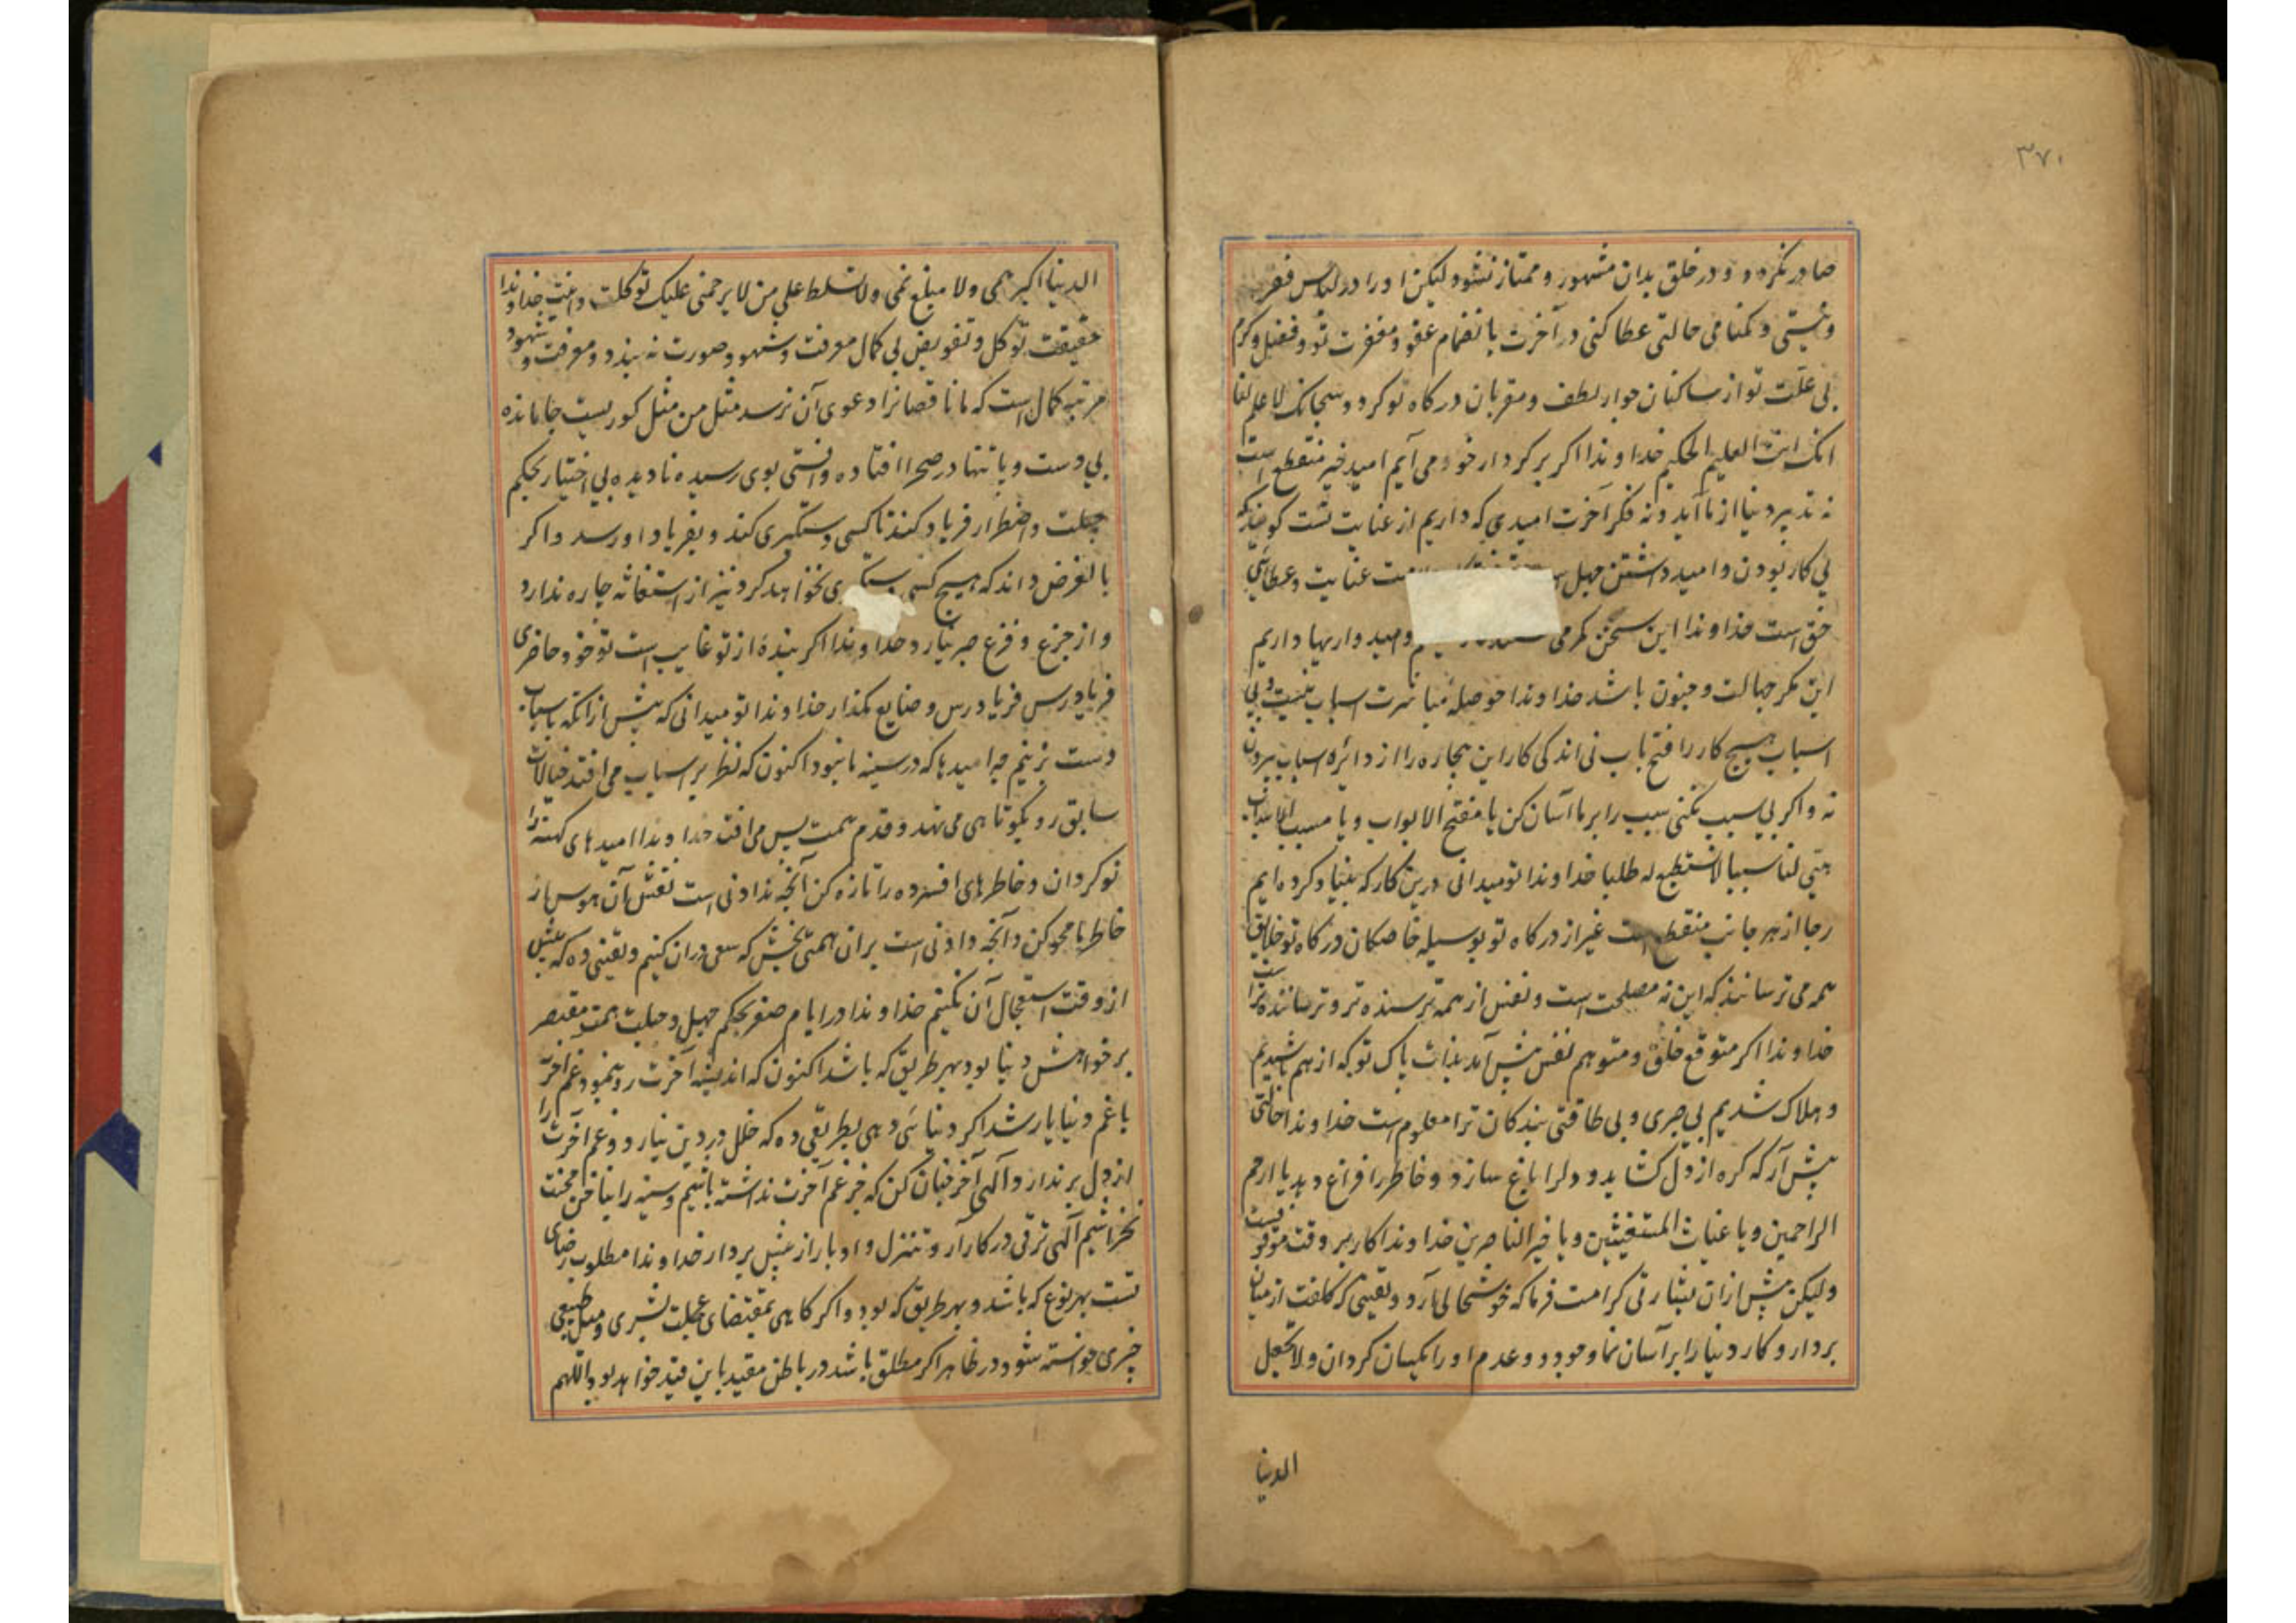 ۳۷۰
صادر نکرده و در خلق بدان مشهور و ممتاز نشود لیکن او را در لباس فقر
و نیستی و کمنامی حالتی عطا کنی در آخرت بانضمام عفو و مغفرت تو و فضل و کرم
بی علت تو از ساکنان جوار لطف و مقربان درکاه تو کردد سبحانک لا علم لنا
انک انت العلیم الحکیم خداوندا اکر بر کردار خود می آیم امید خیر منقطع است
نه تدبیر دنیا از ما آید و نه فکر آخرت امیدی که داریم از عنایت تست کویند که
بی کار بودن و امید داشتن جهل عنایت و عطای
حق است خداوندا این سخن کرمی و امیدواریها داریم
این مکر جهالت و جنون باشد خداوندا حوصله مباشرت اسباب نیست و بی
اسباب هیچ کار را فتح باب نی اندکی کار این بیچاره را از دائره اسباب بیرون
نه و اکر بی سبب نکنی سبب را بر ما آسان کن یا مفتح الابواب و یا مسبب الاسباب
هیّی لنا سببا لا نستطیع له طلبا خداوندا تو میدانی درین کار که بنیاد کرده ایم
رجا از هر جانب منقطع است غیر از درکاه تو بوسیله خاصکان درکاه تو خلایق
همه می ترسانند که این نه مصلحت است و نفس از همه ترسنده تر و ترساننده تر است
خداوندا اکر متوقع خلق و متوهم نفس پیش آمد بذات پاک تو که از هم پاشیدیم
و هلاک شدیم بی صبری و بی طاقتی بندکان ترا معلوم است خداوندا حالتی
پیش آر که کره از دل کشاید و دلرا باغ سازد و خاطر را فراغ دهد یا ارحم
الراحمین و یا غیاث المستغیثین و یا خیر الناصرین خداوندا کار بر وقت موقوفست
ولیکن پیش ازان بشارتی کرامت فرما که خوشحالی آرد و یقینی که کلفت از میان
بردارد و کار دنیا را بر آسان نما و وجود و عدم او را یکسان کردان و لا تجعل
الدنیا
الدنیا اکبر همی ولا مبلغ علمی ولا تسلط علی من لا یرحمنی علیک توکلت خداوندا
حقیقت توکل و تفویض بی کمال معرفت و شهود صورت نه بندد و معرفت و شهود
مرتبه کمال است که ما ناقصانرا دعوی آن نرسد مثل من مثل کوریست جا مانده
بی دست و پا تنها در صحرا افتاده و آفتی بوی رسیده نادیده بی اختیار بحکم
جبلت و اضطرار فریاد کند تا کسی دستگیری کند و بفریاد او رسد و اکر
بالفرض داند که هیچ کسی دستگیری نخواهد کرد نیز از استغاثه چاره ندارد
و از جزع و فزع صبر نیارد خداوندا اکر بنده از تو غایب است تو خود حاضری
فریادرس فریادرس و ضایع مکذار خداوندا تو میدانی که پیش ازانکه باسباب
دست بزنیم چه امیدها که در سینه ما نبود اکنون که نظر بر اسباب می افتد خیالات
سابق رو بکوتاهی می نهد و قدم همت پس می افتد خداوندا امیدهای کهنه را
نو کردان و خاطرهای افسرده را تازه کن آنچه نادادنی است نقش آن هوس از
خاطر ما محو کن و آنچه دادنی است بران همتی بخش که سعی دران کنیم و یقینی ده که پیش
از وقت استعجال آن نکنیم خداوندا در ایام صغر بحکم جهل و جبلت همت مقتصر
بر خواهش دنیا بود بهر طریق که باشد اکنون که اندیشه آخرت رو نمود غم آخرت
با غم دنیا یار شد اکر دنیائی دهی بطریقی ده که خلل در دین نیارد و غم آخرت را
از دل بر ندارد الهی آخر چنان کن که جز غم آخرت نداشته باشیم و سینه را بناخن محنت
نخراشیم الهی ترقی در کار آر و تنزل و ادبار از پیش بردار خداوندا مطلوب رضای
تست بهر نوع که باشد و بهر طریق که بود و اکر کاهی بمقتضای عجلت بشری و میل طبیعی
چیزی خواسته شود در ظاهر اکر مطلق باشد در باطن مقید باین قید خواهد بود اللهم